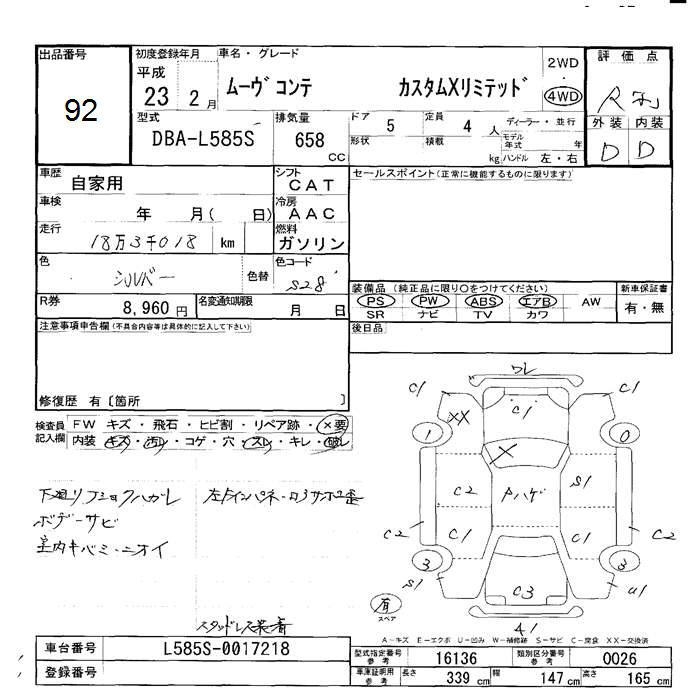 出品番号 92
初度登録年月 平成 23 2月
車名・グレード ムーヴコンテ カスタムXリミテッド
2WD 4WD
評価点 R
外装 内装
D D
型式 DBA-L585S
排気量 658 CC
ドア 5
形状
定員 4 人
積載 kg
ディーラー・並行
モデル年式 年
ハンドル 左・右
車歴 自家用
シフト CAT
車検 年 月( 日)
冷房 AAC
走行 18万3千018 km
燃料 ガソリン
色 シルバー 色替
色コード S28
R券 8,960円
名変通知期限 月 日
セールスポイント(正常に機能するものに限ります)
装備品(純正品に限り〇をつけてください)
PS PW ABS エアB AW
SR ナビ TV カワ
新車保証書 有・無
後日品
注意事項申告欄(不具合内容等は具体的に記入して下さい)
修復歴 有〔箇所 〕
検査員記入欄
FW キズ・飛石・ヒビ割・リペア跡・×要
内装 キズ・汚れ・コゲ・穴・スレ・キレ・破レ
ボデーサビ
室内キバミ・ニオイ
スタッドレス装着
ワレ
C1 C1 C1
XX
1 0
X
C2 Pハゲ S1
C2 C1 C1 C2
3 3
S1 C3 U1
有 スペア
A1
A-キズ E-エクボ U-凹み W-補修跡 S-サビ C-腐食 XX-交換済
車台番号 L585S-0017218
登録番号
型式指定番号 参考 16136
類別区分番号 参考 0026
車庫証明用 参考 長さ 339 cm 幅 147 cm 高さ 165 cm